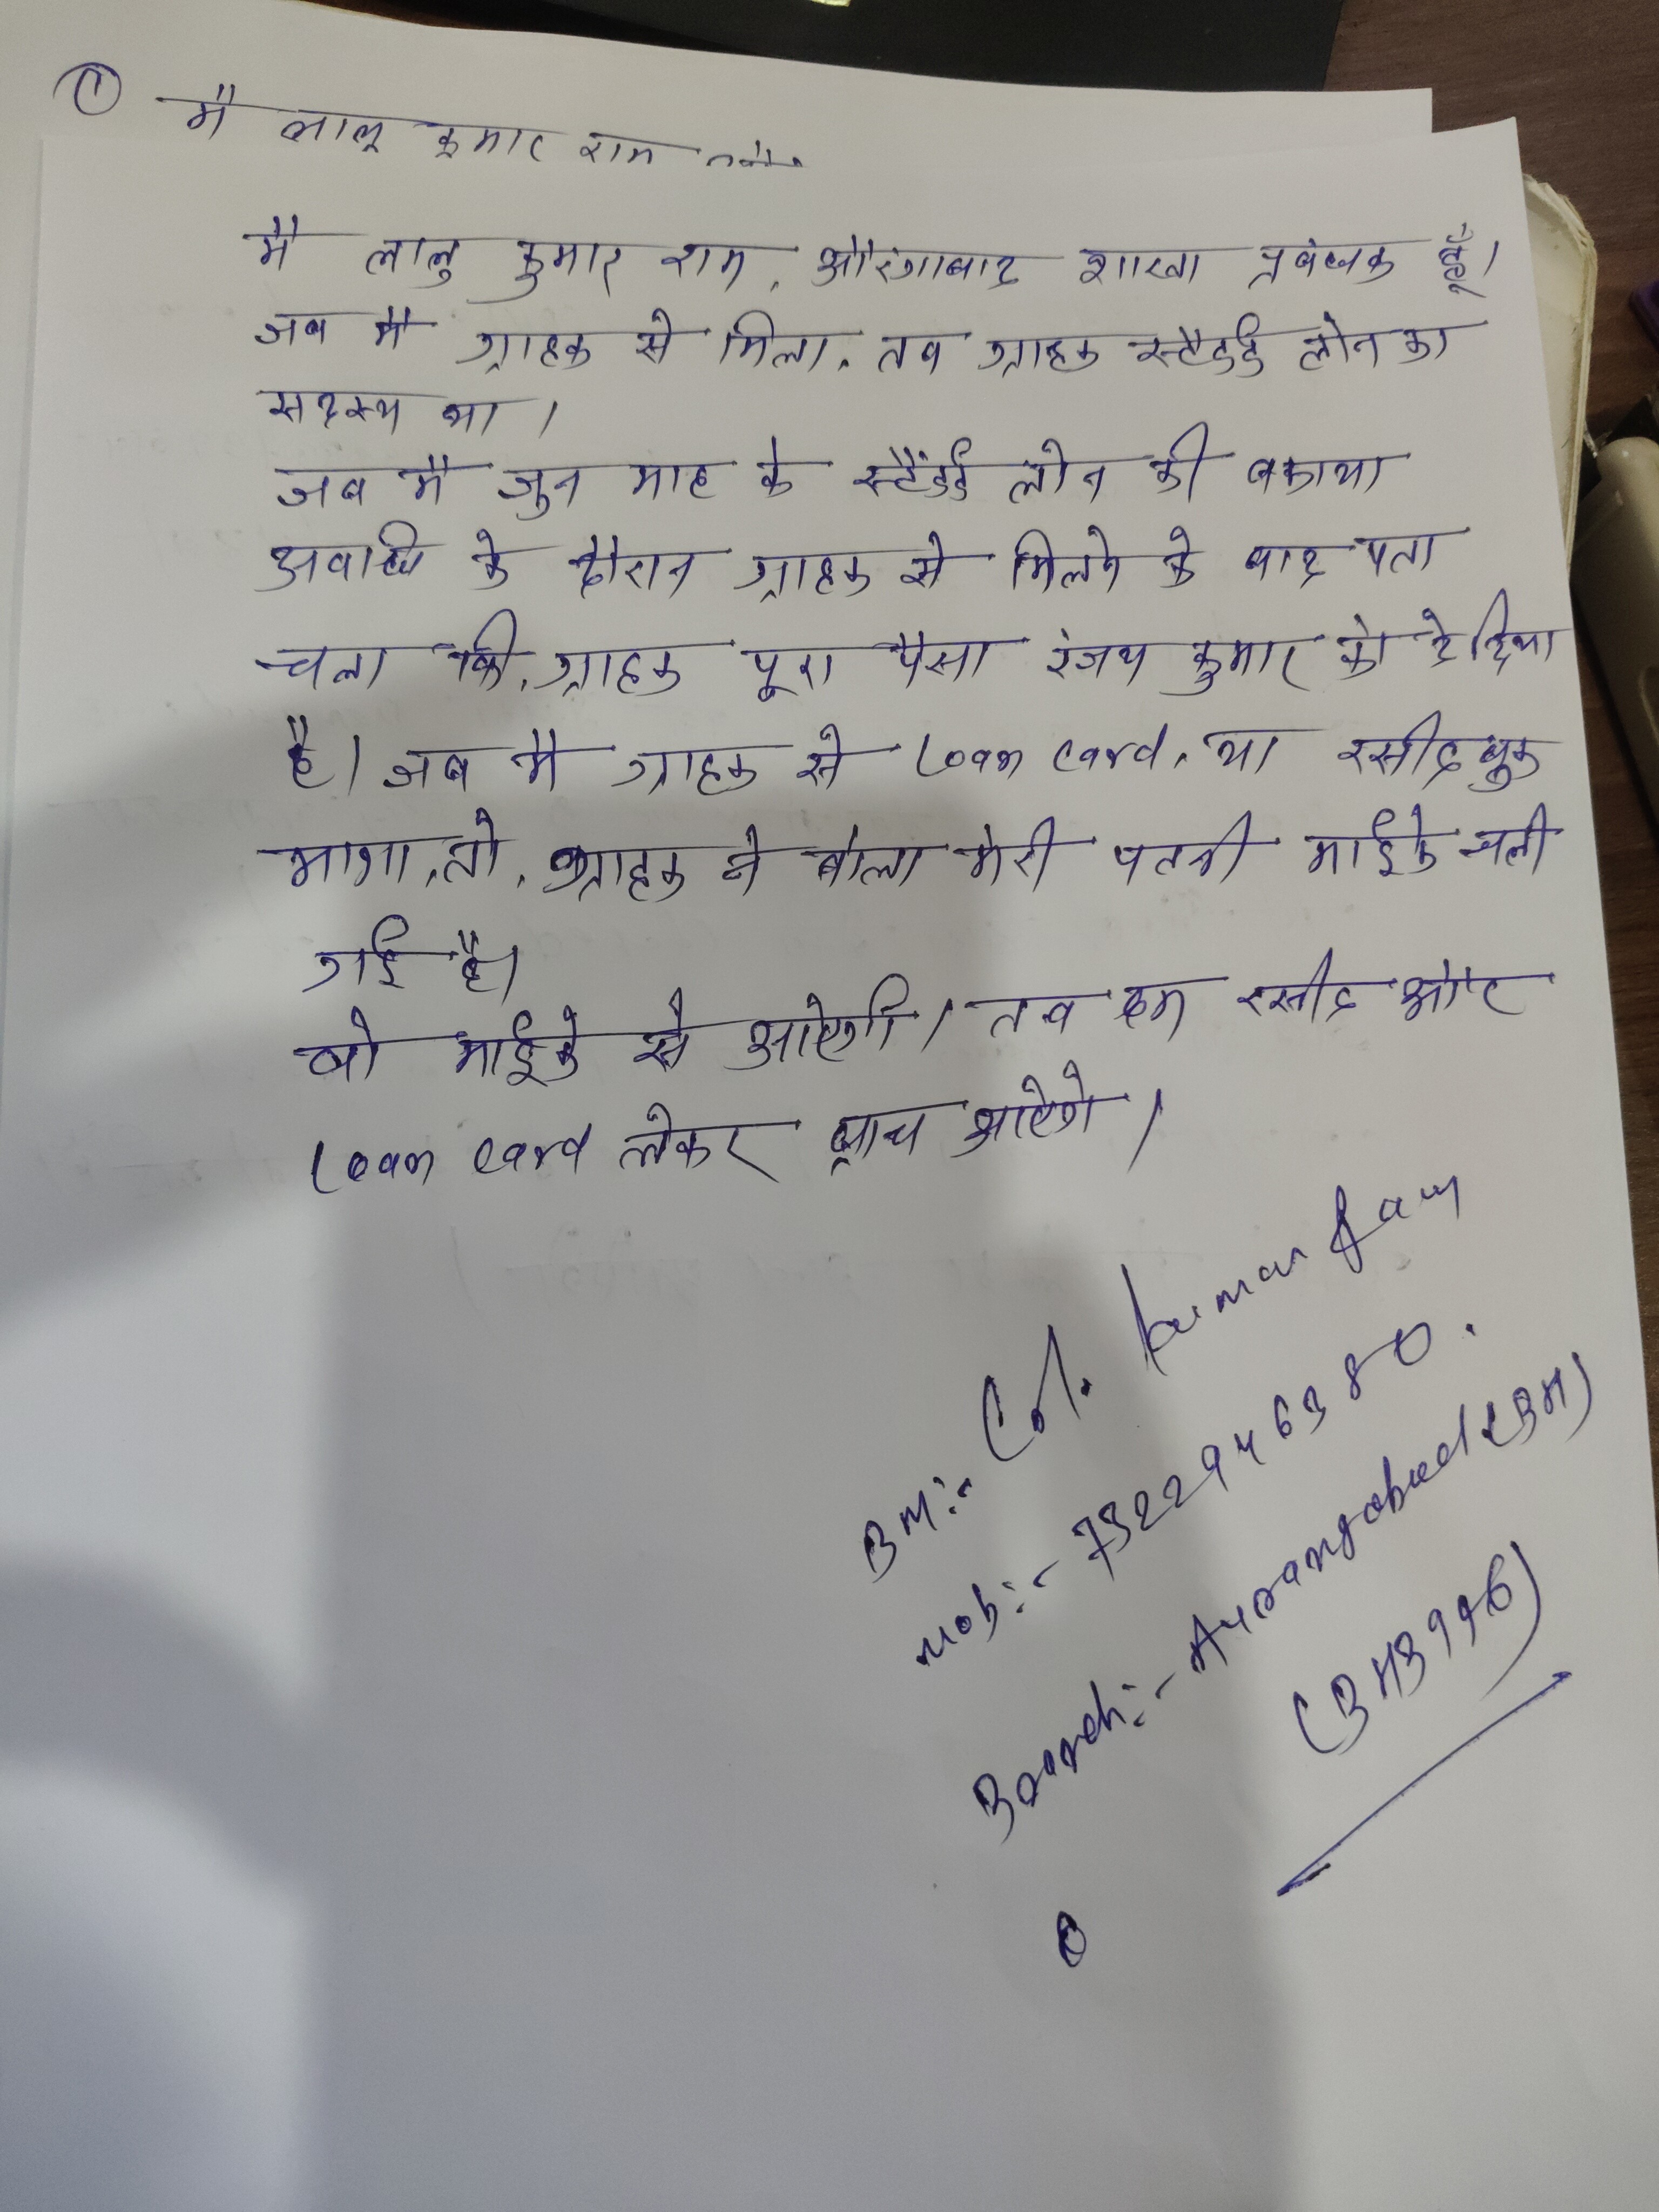 ① मै लालू कुमार राम
मै लालु कुमार राम, औरंगाबाद शाखा प्रबंधक हूँ।
जब मै ग्राहक से मिला, तब ग्राहक स्टैंर्डड लोन का
सदस्य था।
जब मै जुन माह के स्टैंर्डड लोन की बकाया
अवाधि के दौरान ग्राहक से मिलने के बाद पता
चला की, ग्राहक पूरा पैसा रंजय कुमार को दे दिया
है। जब मै ग्राहक से Loan card, या रसीद बुक
मागा, तो, ग्राहक ने बोला मेरी पत्नी माईके चली
गई है।
वो माईके से आएगी। तब हम रसीद और
Loan card लेकर ब्रांच आएंगे।
BM:- Kumar Ram
Mob:-
Branch:- Aurangabad (BH)